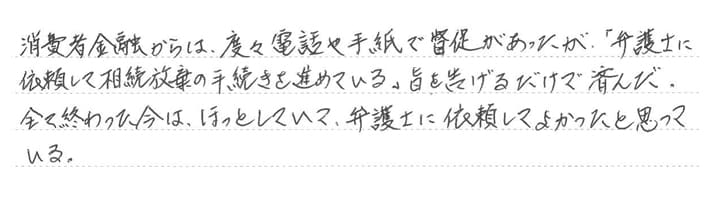 消費者金融からは、度々電話や手紙で督促があったが、「弁護士に
依頼して相続放棄の手続きを進めている」旨を告げるだけで済んだ。
全て終わった今は、ほっとしていて、弁護士に依頼してよかったと思って
いる。